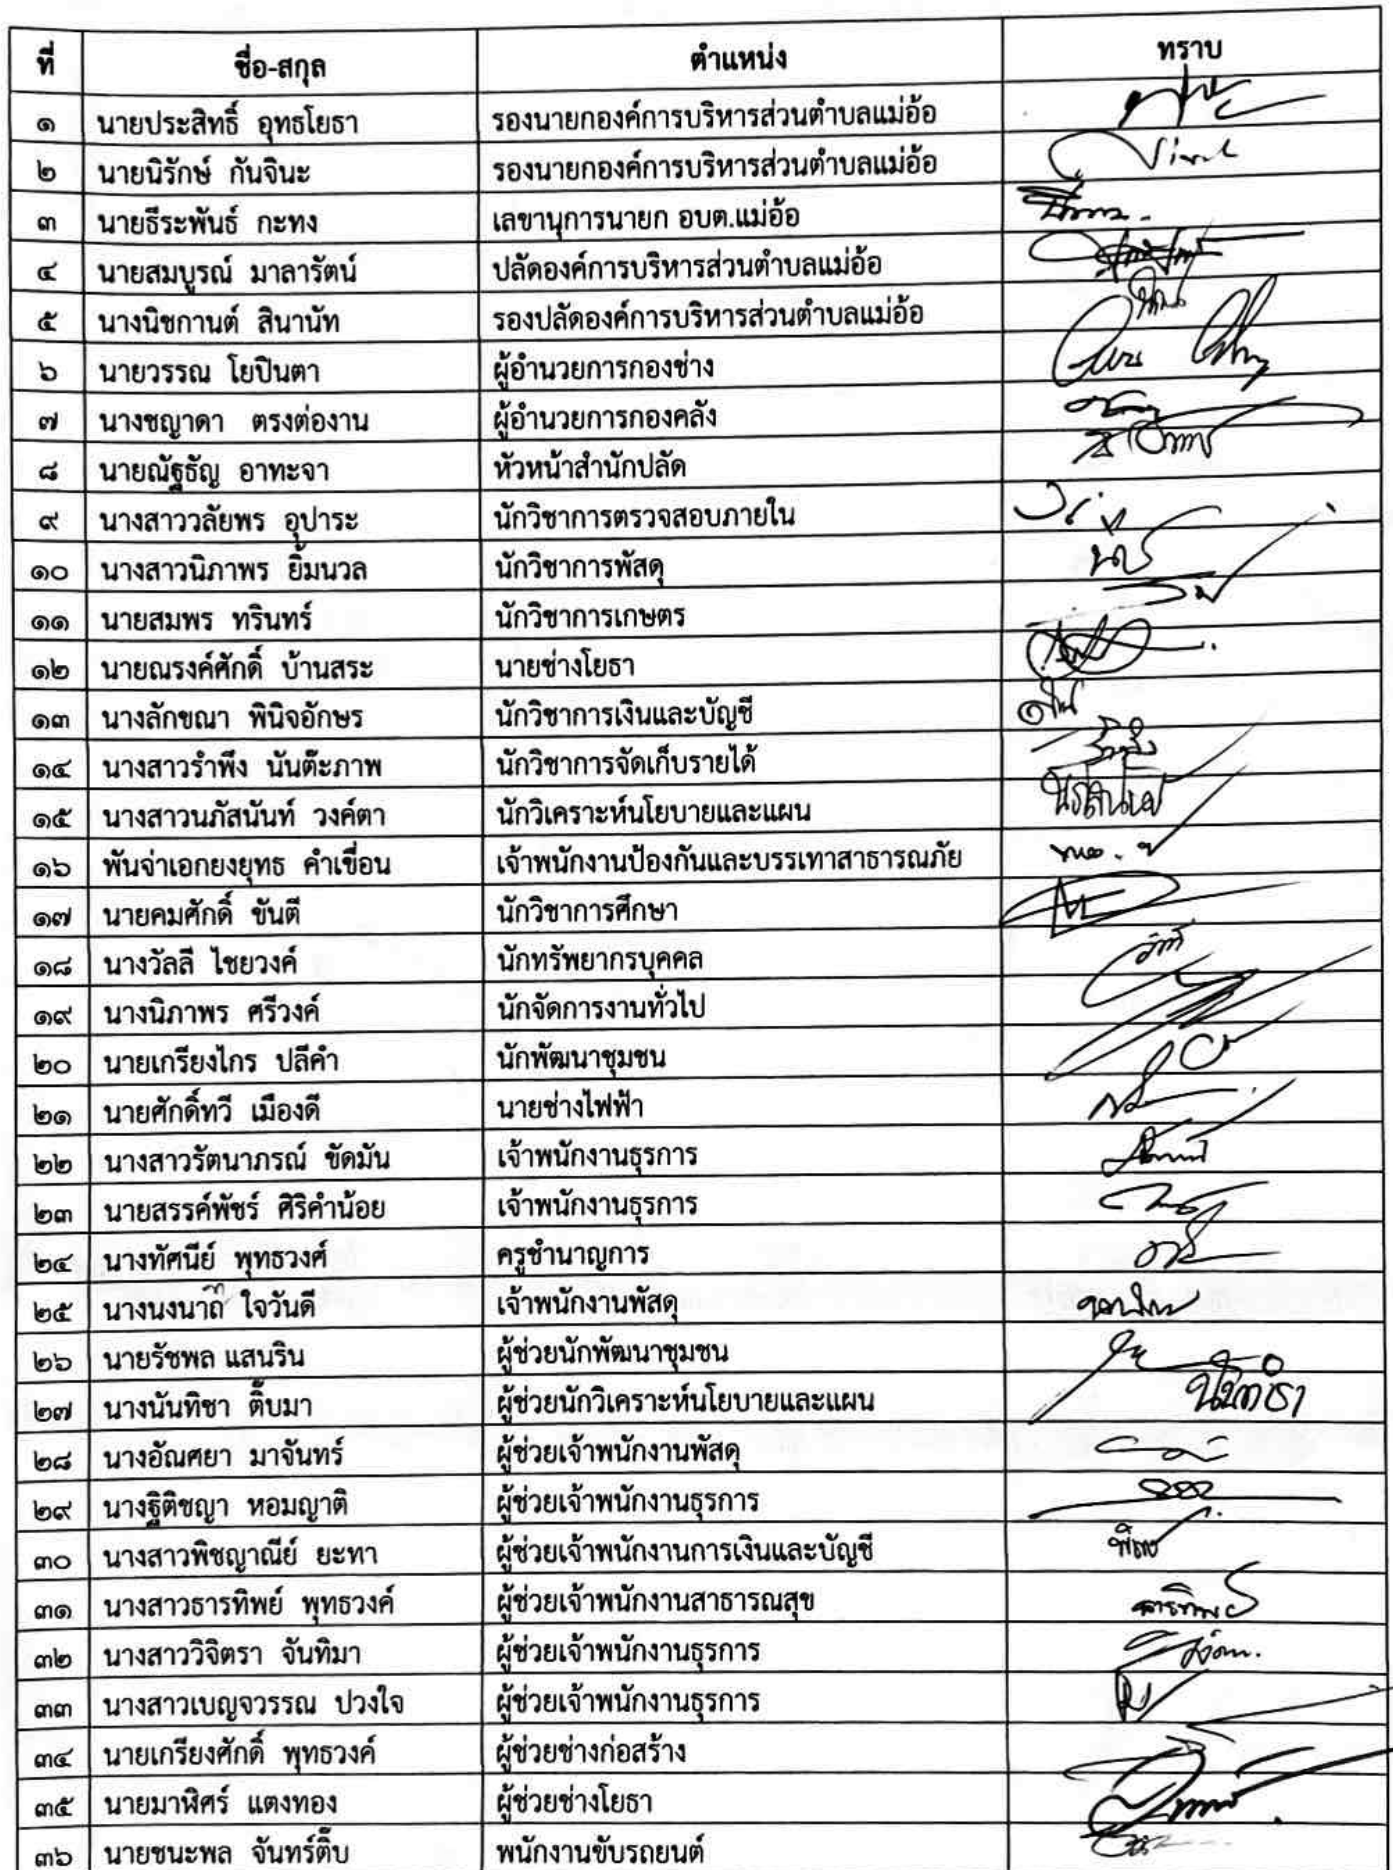 ที่ ชื่อ-สกุล ตำแหน่ง ทราบ
๑ นายประสิทธิ์ อุทธโยธา รองนายกองค์การบริหารส่วนตำบลแม่อ้อ
๒ นายนิรักษ์ กันจินะ รองนายกองค์การบริหารส่วนตำบลแม่อ้อ
๓ นายธีระพันธ์ กะทง เลขานุการนายก อบต.แม่อ้อ
๔ นายสมบูรณ์ มาลารัตน์ ปลัดองค์การบริหารส่วนตำบลแม่อ้อ
๕ นางนิชกานต์ สินานัท รองปลัดองค์การบริหารส่วนตำบลแม่อ้อ
๖ นายวรรณ โยปินตา ผู้อำนวยการกองช่าง
๗ นางชญาดา ตรงต่องาน ผู้อำนวยการกองคลัง
๘ นายณัฐธัญ อาทะจา หัวหน้าสำนักปลัด
๙ นางสาววลัยพร อุปาระ นักวิชาการตรวจสอบภายใน
๑๐ นางสาวนิภาพร ยิ้มนวล นักวิชาการพัสดุ
๑๑ นายสมพร ทรินทร์ นักวิชาการเกษตร
๑๒ นายณรงค์ศักดิ์ บ้านสระ นายช่างโยธา
๑๓ นางลักขณา พินิจอักษร นักวิชาการเงินและบัญชี
๑๔ นางสาวรำพึง นันต๊ะภาพ นักวิชาการจัดเก็บรายได้
๑๕ นางสาวนภัสนันท์ วงค์ตา นักวิเคราะห์นโยบายและแผน
๑๖ พันจ่าเอกยงยุทธ คำเขื่อน เจ้าพนักงานป้องกันและบรรเทาสาธารณภัย
๑๗ นายคมศักดิ์ ขันตี นักวิชาการศึกษา
๑๘ นางวัลลี ไชยวงค์ นักทรัพยากรบุคคล
๑๙ นางนิภาพร ศรีวงค์ นักจัดการงานทั่วไป
๒๐ นายเกรียงไกร ปลีคำ นักพัฒนาชุมชน
๒๑ นายศักดิ์ทวี เมืองดี นายช่างไฟฟ้า
๒๒ นางสาวรัตนาภรณ์ ขัดมัน เจ้าพนักงานธุรการ
๒๓ นายสรรค์พัชร์ ศิริคำน้อย เจ้าพนักงานธุรการ
๒๔ นางทัศนีย์ พุทธวงศ์ ครูชำนาญการ
๒๕ นางนงนาถ ใจวันดี เจ้าพนักงานพัสดุ
๒๖ นายรัชพล แสนริน ผู้ช่วยนักพัฒนาชุมชน
๒๗ นางนันทิชา ติ๊บมา ผู้ช่วยนักวิเคราะห์นโยบายและแผน
๒๘ นางอัณศยา มาจันทร์ ผู้ช่วยเจ้าพนักงานพัสดุ
๒๙ นางฐิติชญา หอมญาติ ผู้ช่วยเจ้าพนักงานธุรการ
๓๐ นางสาวพิชญาณีย์ ยะทา ผู้ช่วยเจ้าพนักงานการเงินและบัญชี
๓๑ นางสาวธารทิพย์ พุทธวงค์ ผู้ช่วยเจ้าพนักงานสาธารณสุข
๓๒ นางสาววิจิตรา จันทิมา ผู้ช่วยเจ้าพนักงานธุรการ
๓๓ นางสาวเบญจวรรณ ปวงใจ ผู้ช่วยเจ้าพนักงานธุรการ
๓๔ นายเกรียงศักดิ์ พุทธวงค์ ผู้ช่วยช่างก่อสร้าง
๓๕ นายมาฬิศร์ แตงทอง ผู้ช่วยช่างโยธา
๓๖ นายชนะพล จันทร์ติ๊บ พนักงานขับรถยนต์